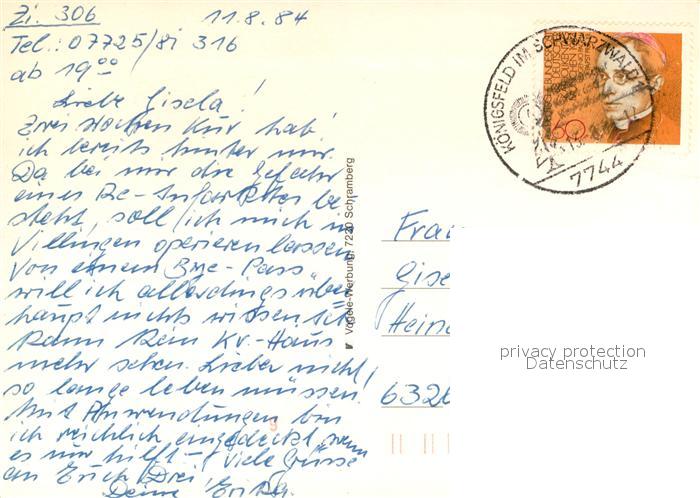 Zi. 306
11.8.84
Tel.: 07725/81 316
ab 19⁰⁰
Liebe Gisela!
Zwei Wochen Kur hab'
ich bereits hinter mir.
Da bei mir die Gefahr
eines Re-Infarktes be-
steht, soll ich mich in
Villingen operieren lassen.
Von einem Bye-Pass
will ich allerdings über-
haupt nichts wissen. Ich
kann kein Kr.-Haus
mehr sehen. Lieber nicht
so lange leben müssen!
Mit Anwendungen bin
ich reichlich eingedeckt, wenn
es nur hilft - Viele Grüsse
an Erich! Drei
Deine Erika.
Vögele-Werbung, 7230 Schramberg
KÖNIGSFELD IM SCHWARZWALD
7744
60
Frau
Gise
Heinz
6326
privacy protection
Datenschutz